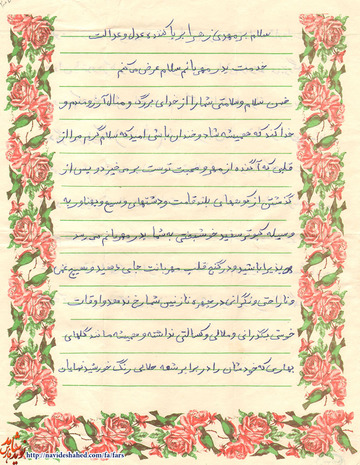 سلام بر مهدی زهرا برپا کننده عدل و عدالت
خدمت پدر مهربانم سلام عرض می‌کنم
ضمن سلام سلامتی شما را از خدای بزرگ و متعال آرزومندم و
خدا کند که همیشه شاد و خندان باشی امید که سلام گرم مرا از
قلبی که آکنده از مهر و محبت توست بر می‌خیزد و پس از
گذشتن از کوههای بلند قامت و دشتهای وسیع و پهناور به
وسیله کبوتر سفید خوشبختی به شما پدر مهربانم می رسد
پذیرا باشید و در گنج قلب مهربانت جای دهید و هیچ غمی
و ناراحتی و نگرانی در چهره نازنین شما رخ ندهد و اوقات
خوشی بگذرانی و ملالی و کسالتی نداشته و همیشه مانند گلهای
بهاری که خودشان را در برابر اشعه طلایی رنگ خورشید نمایان
http://navideshahed.com/fa/fars